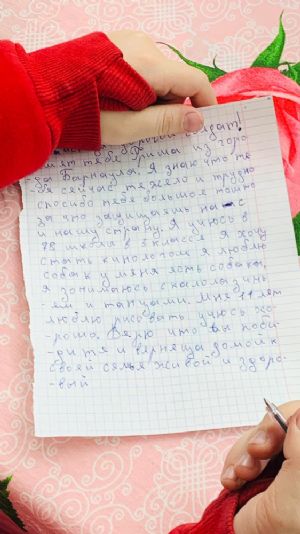 дорогой солдат!
шет тебе Гриша из горо
да Барнаула. Я знаю что те
бе сейчас тяжело и трудно
спосибо тебе большое таково
за что защищаешь нас
и нашу страну. Я учусь в
98 школа в 3 классе я хочу
стать кинологом я люблю
собак у меня есть собака,
я занимаюсь скалолазань
-ем и танцами. Мне 11 лет
люблю рисовать учюсь хо
-рошо. Верю что вы поби
-дите и вернёща домой к
своей семье живой и здоро-
-вый